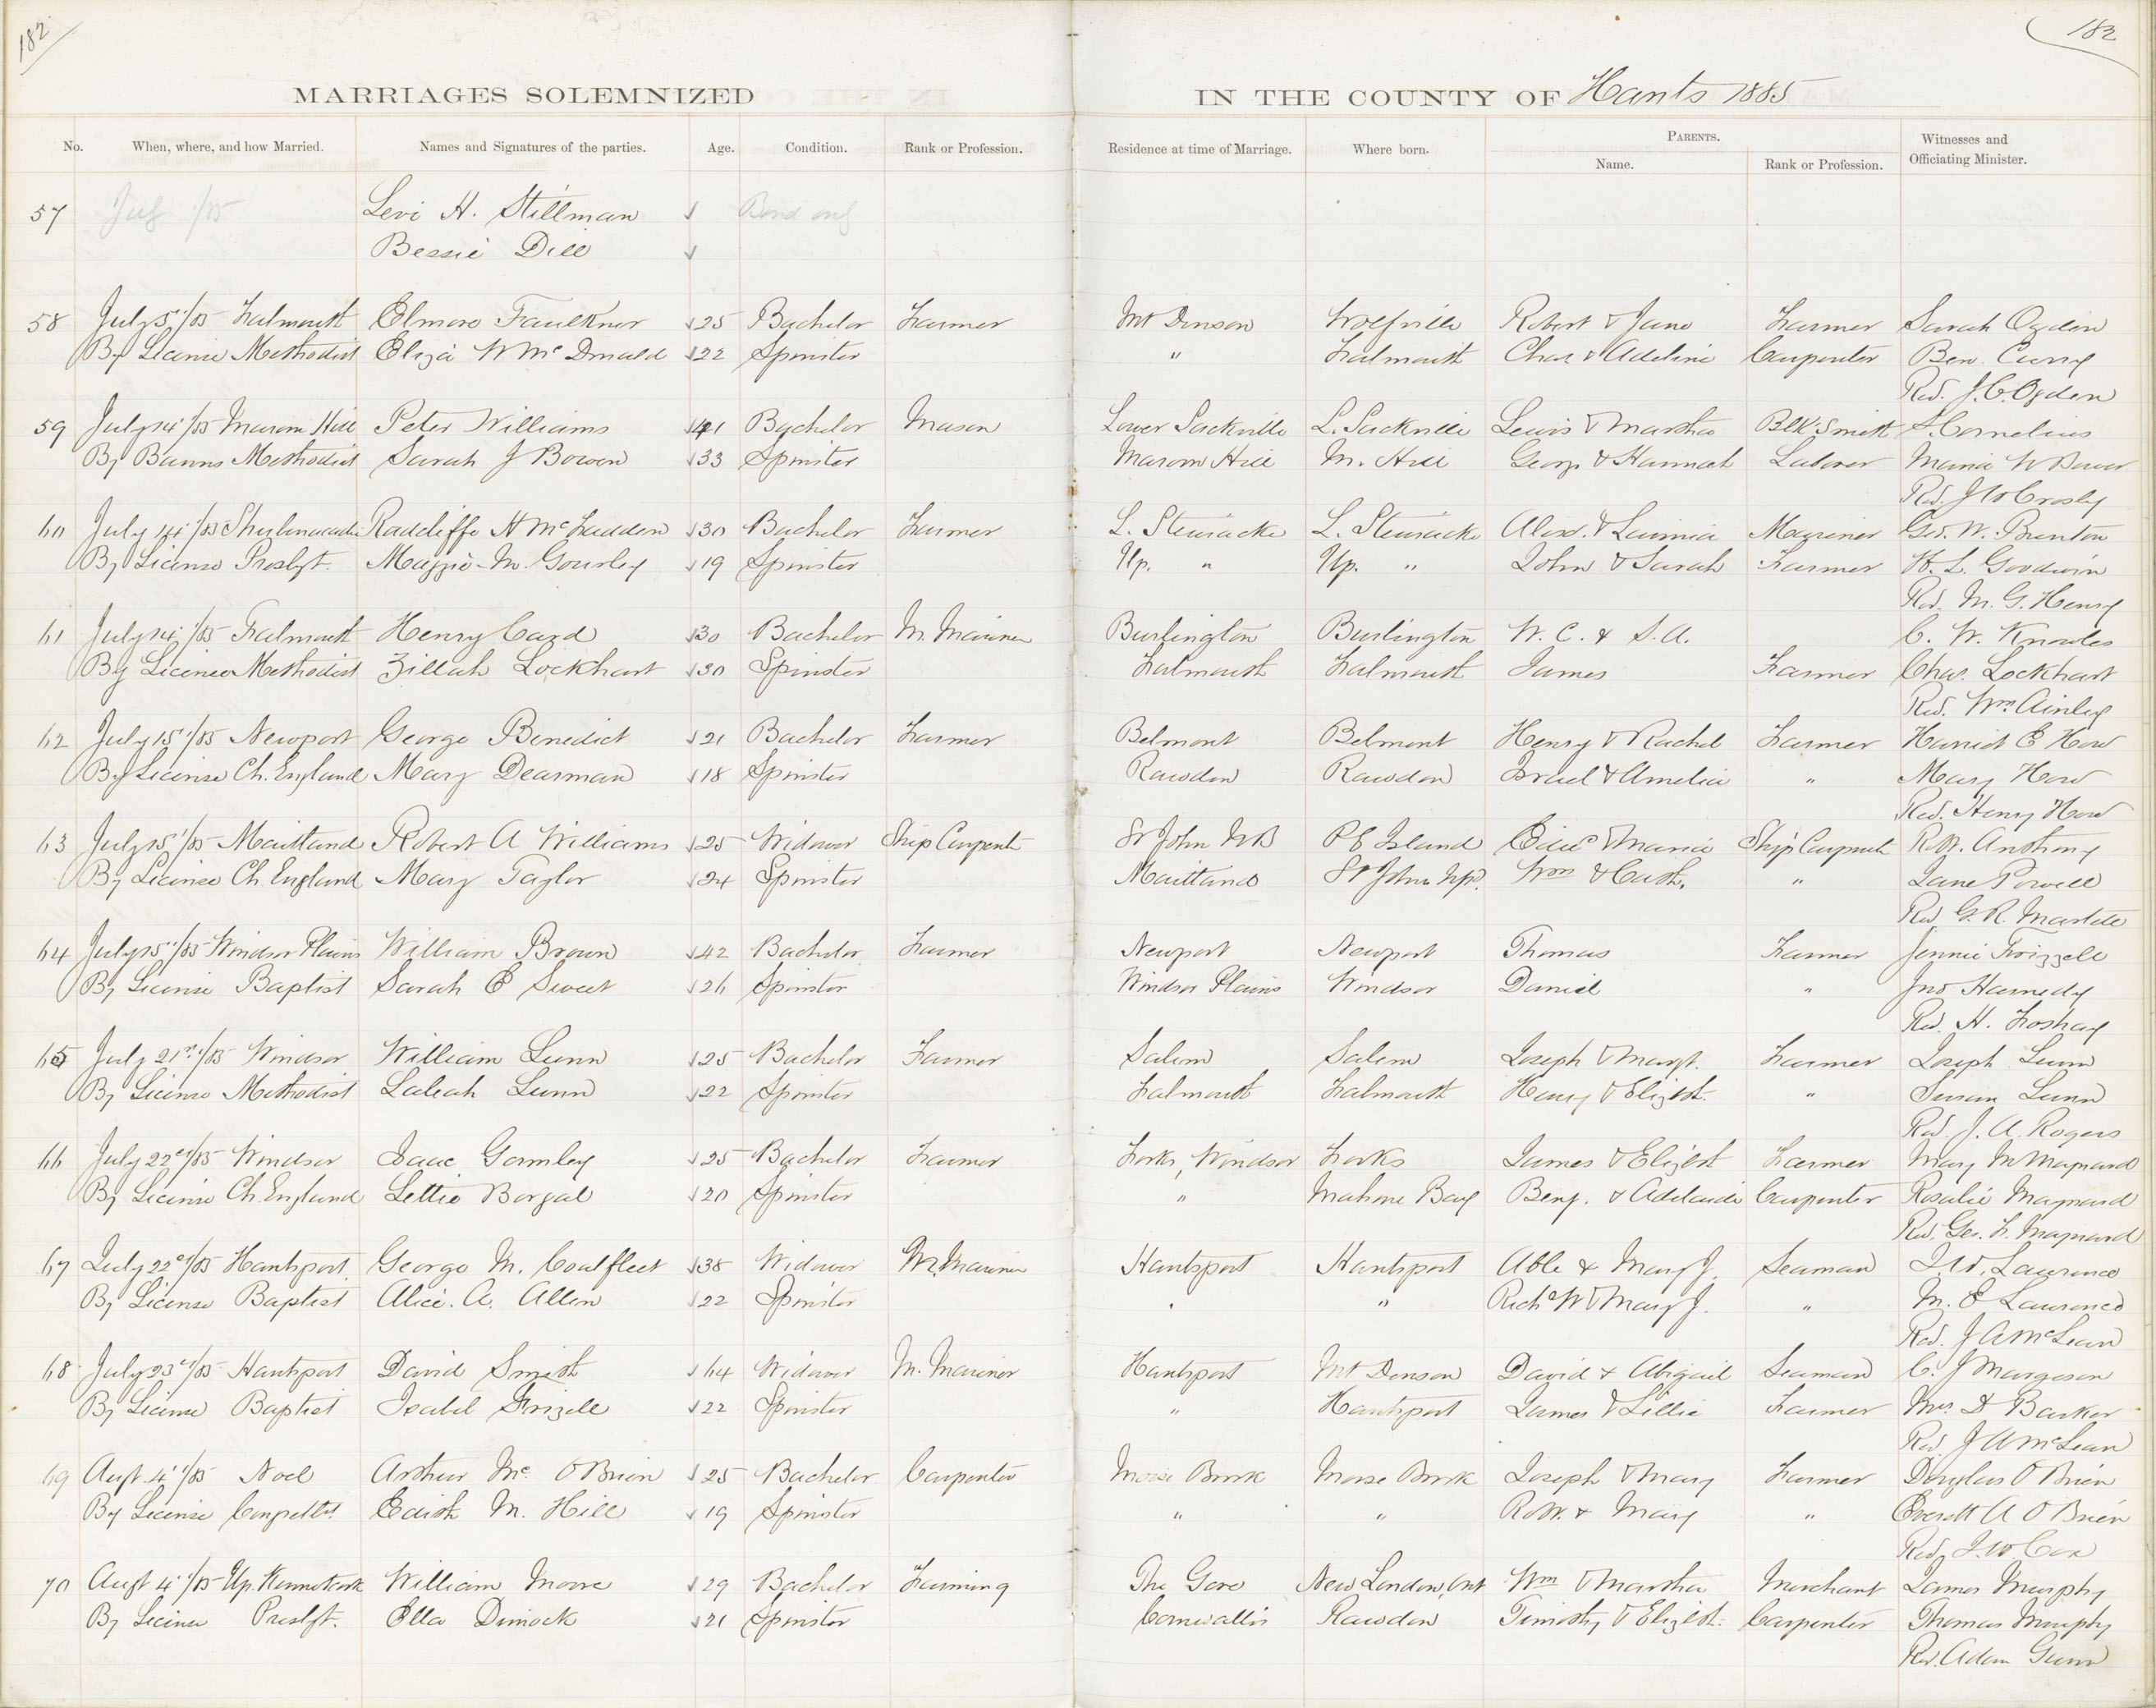 182
182
MARRIAGES SOLEMNIZED IN THE COUNTY OF Hants 1885
No. When, where, and how Married. Names and Signatures of the parties. Age. Condition. Rank or Profession. Residence at time of Marriage. Where born. PARENTS. Name. Rank or Profession. Witnesses and Officiating Minister.
57 July 1/85 Levi H. Stillman Bond only
Bessie Dill
58 July 5th/85 Falmouth Elmore Faulkner 25 Bachelor Farmer Mt Denson Wolfville Robert & Jane Farmer Sarah Ogden
By License Methodist Eliza W McDonald 22 Spinster " Falmouth Chas & Adeline Carpenter Ben Curry
Rev. J.C. Ogden
59 July 14/85 Marom Hill Peter Williams 41 Bachelor Mason Lower Sackville L. Sackville Lewis & Martha Blk Smith Cornelius
By Banns Methodist Sarah J Bowen 33 Spinster Marom Hill M. Hill George & Hannah Laborer Maria W Bower
Rev. J W Crosby
60 July 14/85 Shubenacadie Radcliffe H McFadden 30 Bachelor Farmer L. Stewiacke L. Stewiacke Alexr. & Mariner Geo. W. Brenton
By License Presbyt. Maggie M. Gourley 19 Spinster Up. " Up. " John & Sarah Farmer H. L. Goodwin
Rev. M. G. Henry
61 July 14/85 Falmouth Henry Card 30 Bachelor M. Mariner Burlington Burlington W. C. & S. A. C. W. Knowles
By License Methodist Zillah Lockhart 30 Spinster Falmouth Falmouth James Farmer Chas. Lockhart
Rev. Wm Ainley
62 July 15/85 Newport George Benedict 21 Bachelor Farmer Belmont Belmont Henry & Rachel Farmer Harriet E How
By License Ch. England Mary Dearman 18 Spinster Rawdon Rawdon Israel & Amelia " Mary How
Rev. Henry How
63 July 15/85 Maitland Robert A Williams 25 Widower Ship Carpent St John NB P E Island Edwd & Maria Ship Carpent R.W. Anthony
By License Ch. England Mary Taylor 24 Spinster Maitland St Johns Wm & Cath. " Jane Powell
Rev G. R. Martell
64 July 15/85 Windsor Plains William Brown 42 Bachelor Farmer Newport Newport Thomas Farmer Jennie Frizzell
By License Baptist Sarah E Sweet 26 Spinster Windsor Plains Windsor Daniel " Jno
Rev. H. Foshay
65 July 21st/85 Windsor William Lunn 25 Bachelor Farmer Salem Salem Joseph & Margt. Farmer Joseph Lunn
By License Methodist Laleah Lunn 22 Spinster Falmouth Falmouth Henry & Elizbt. " Susan Lunn
Rev. J. A. Rogers
66 July 22d/85 Windsor Isaac Gormley 25 Bachelor Farmer Forks, Windsor Forks James & Elizbt Farmer Mary M Maynard
By License Ch. England Lettie Borgal 20 Spinster " Mahone Bay Benj. & Adelaide Carpenter Rosalie Maynard
Rev. Geo. F. Maynard
67 July 22d/85 Hantsport George M. Coalfleet 38 Widower M. Mariner Hantsport Hantsport Able & Mary J. Seaman J.W. Lawrence
By License Baptist Alice. A. Allen 22 Spinster " " Richd W & Mary J. " M. E Lawrence
Rev. J A McLean
68 July 23d/85 Hantsport David Smith 64 Widower M. Mariner Hantsport Mt Denson David & Abigail Seaman C. J Margeson
By License Baptist Isabel Frizell 22 Spinster " Hantsport James & Lillie Farmer Mrs D Barker
Rev. J A McLean
69 Augt. 4th/85 Noel Arthur Mc. O'Brien 25 Bachelor Carpenter Moose Brook Moose Brook Joseph & Mary Farmer Douglas O'Brien
By License Congretl. Edith M. Hill 19 Spinster " " Robt. & Mary " Everett A O'Brien
Rev. J.W. Cox
70 Augt 4th/85 Up. Kennetcook William Moore 29 Bachelor Farming The Gore New London, Ont Wm & Martha Merchant James Murphy
By License Presbyt. Ella Dimock 21 Spinster Cornwallis Rawdon Timothy & Elizbt. Carpenter Thomas Murphy
Rev. Adam Gunn